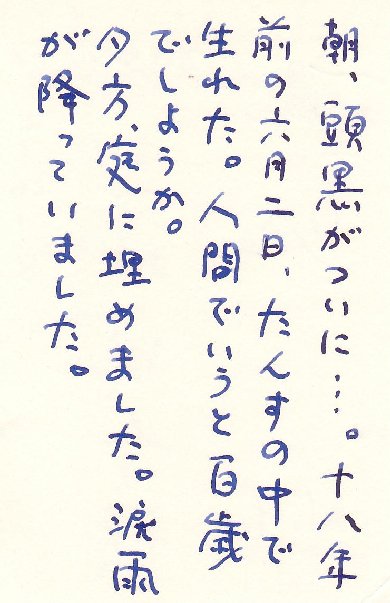 朝、頭黒がついに…。十八年
前の六月二日、たんすの中で
生れた。人間でいうと百歳
でしょうか。
夕方、庭に埋めました。涙雨
が降っていました。